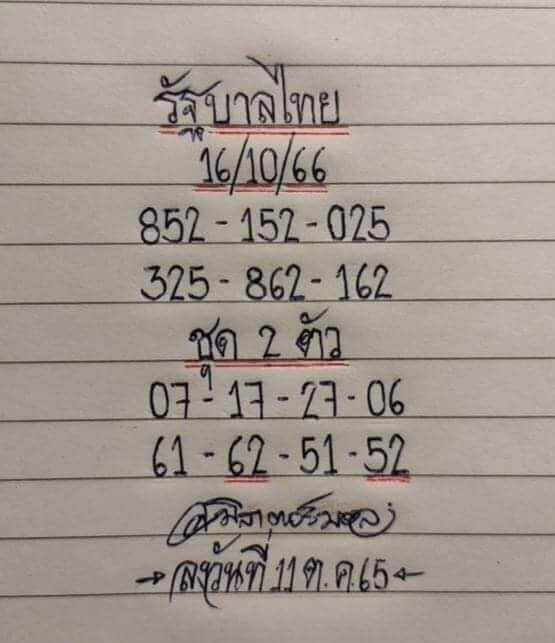 รัฐบาลไทย
16/10/66
852 - 152 - 025
325 - 862 - 162
ชุด 2 ตัว
07 - 17 - 27 - 06
61 - 62 - 51 - 52
→ ลงวันที่ 11 ต.ค.65 ←